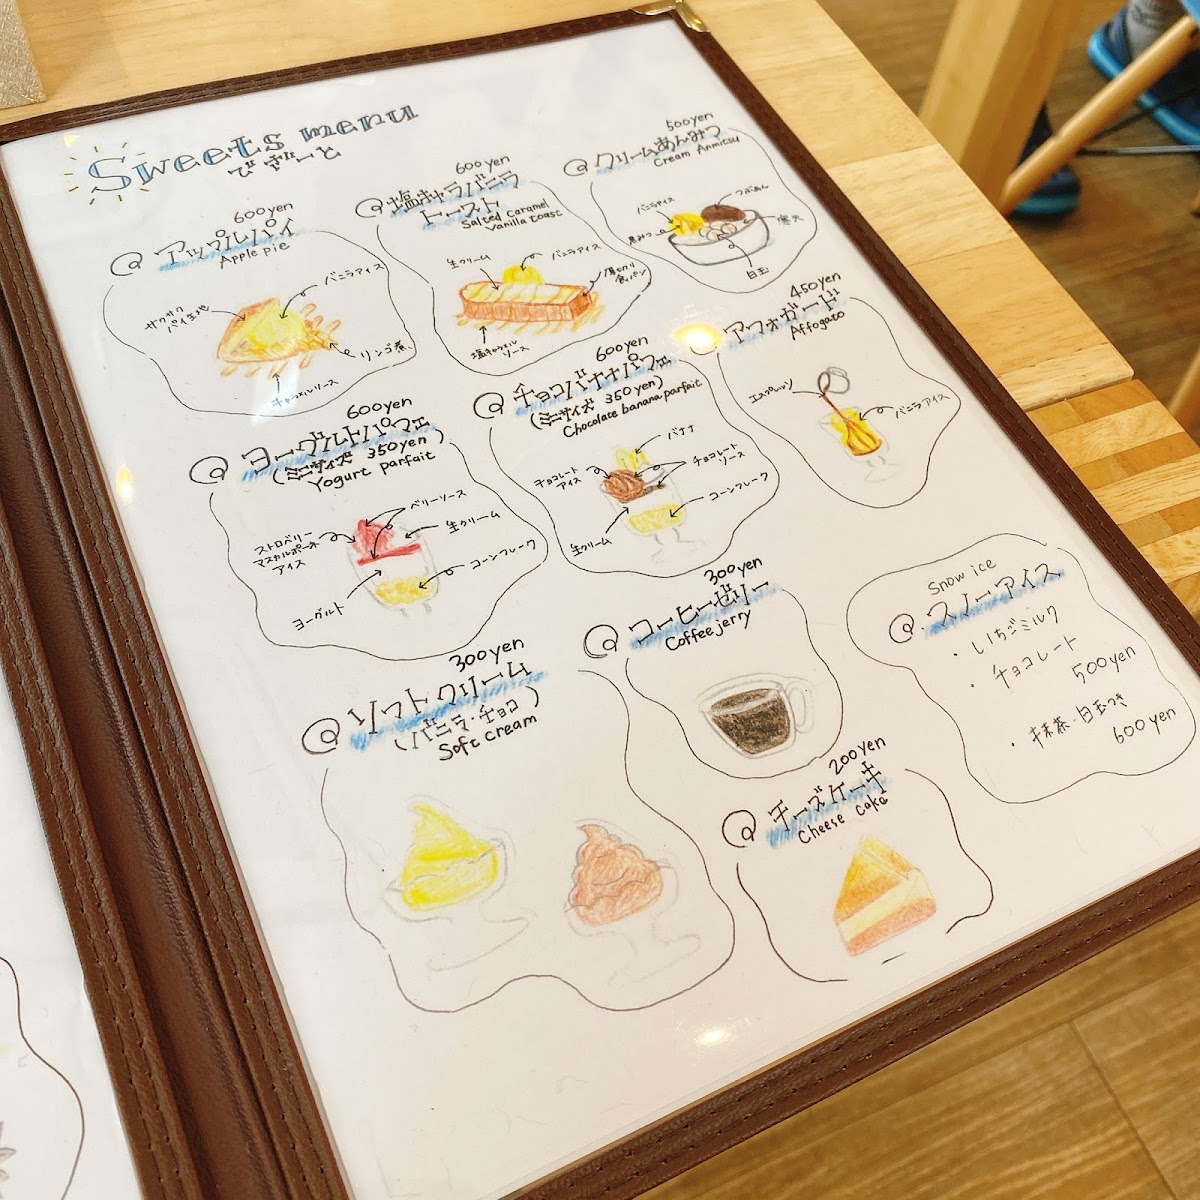 Sweets menu
でざーと
600yen
アップルパイ
Apple pie
バニラアイス
サクサク
パイ生地
リンゴ煮
キャラメルソース
600yen
塩キャラバニラ
トースト
Salted caramel
vanilla toast
生クリーム
バニラアイス
厚切り
食パン
塩キャラメル
ソース
500yen
クリームあんみつ
Cream Anmitsu
バニラアイス
つぶあん
黒みつ
寒天
白玉
600yen
ヨーグルトパフェ
(ミニサイズ 350yen)
Yogurt parfait
ベリーソース
ストロベリー
マスカルポーネ
アイス
生クリーム
コーンフレーク
ヨーグルト
600yen
チョコバナナパフェ
(ミニサイズ 350yen)
Chocolate banana parfait
バナナ
チョコレート
アイス
チョコレート
ソース
コーンフレーク
生クリーム
450yen
アフォガード
Affogato
エスプレッソ
バニラアイス
300yen
ソフトクリーム
(バニラ・チョコ)
Soft cream
300yen
コーヒーゼリー
Coffee jerry
200yen
チーズケーキ
Cheese cake
Snow ice
スノーアイス
・いちごミルク
・チョコレート
500yen
・抹茶・白玉つき
600yen